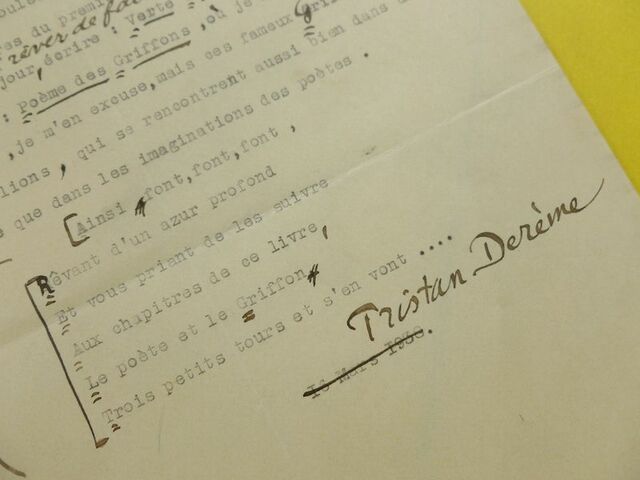 res du premi
rêver de fai
jour, écrire : Verte
: Poème des Griffons, où je
, je m'en excuse, mais ces fameux Griff
lions, qui se rencontrent aussi bien dans
que dans les imaginations des poètes.
Ainsi font, font, font,
Rêvant d'un azur profond
Et vous priant de les suivre
Aux chapitres de ce livre,
Le poète et le Griffon
Trois petits tours et s'en vont ....
Tristan Derème
16 Mars 1938.